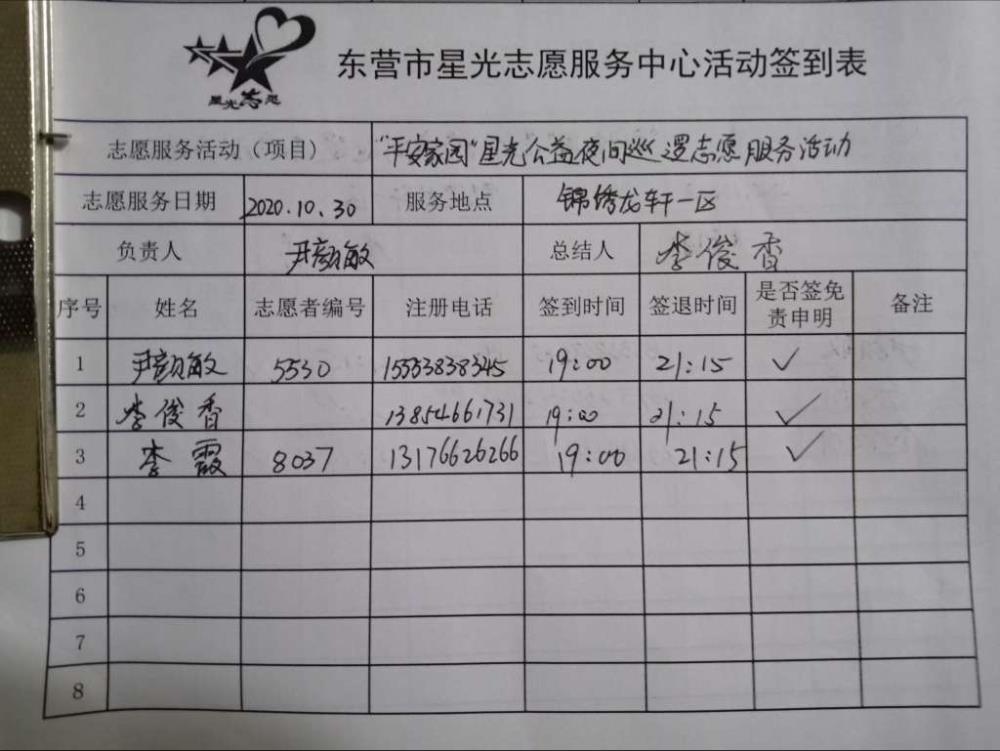 星光志愿
东营市星光志愿服务中心活动签到表
志愿服务活动（项目） "平安家园"星光公益夜间巡逻志愿服务活动
志愿服务日期 2020.10.30 服务地点 锦绣龙轩一区
负责人 尹颜敏 总结人 李俊香
序号 姓名 志愿者编号 注册电话 签到时间 签退时间 是否签免责申明 备注
1 尹颜敏 5530 15553838345 19:00 21:15 ✓
2 李俊香 13854661731 19:00 21:15 ✓
3 李霞 8037 13176626266 19:00 21:15 ✓
4
5
6
7
8